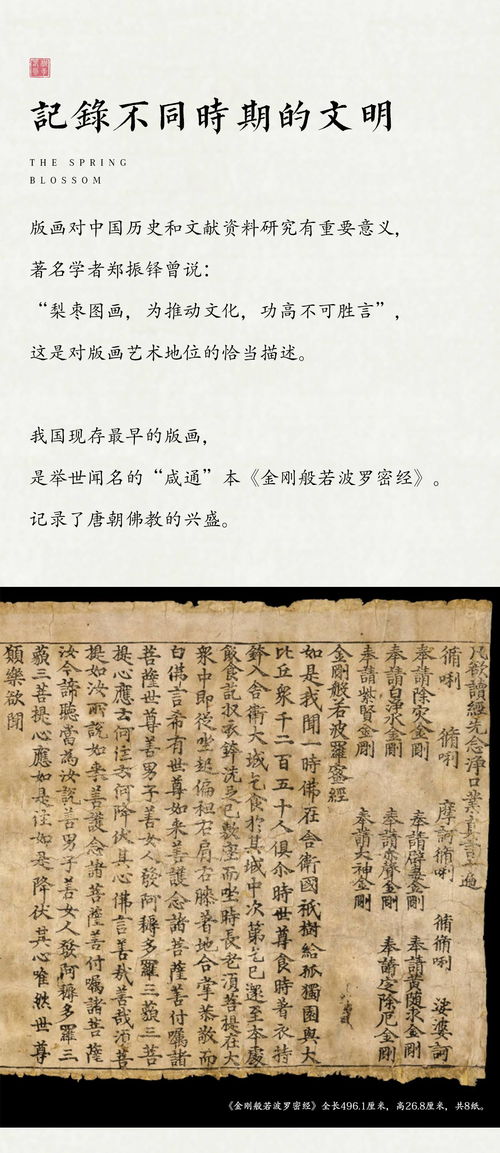 記錄不同時期的文明
THE SPRING
BLOSSOM
版画对中国历史和文献资料研究有重要意义，
著名学者郑振铎曾说：
“梨枣图画，为推动文化，功高不可胜言”，
这是对版画艺术地位的恰当描述。
我国现存最早的版画，
是举世闻名的“咸通”本《金刚般若波罗密经》。
记录了唐朝佛教的兴盛。
凡欲讀經先念淨口業真言一遍
脩唎 脩唎 摩訶脩唎 脩脩唎 娑婆訶
奉請除灾金剛 奉請辟毒金剛 奉請黃隨求金剛
奉請白淨水金剛 奉請赤聲金剛 奉請定除厄金剛
奉請紫賢金剛 奉請大神金剛
金剛般若波羅蜜經
如是我聞一時佛在舍衛國祇樹給孤獨園與大
比丘衆千二百五十人俱尒時世尊食時著衣持
鉢入舍衛大城乞食於其城中次第乞已還至本處
飯食訖收衣鉢洗足已敷座而坐時長老須菩提在大
衆中即從坐起偏袒右肩右膝著地合掌恭敬而
白佛言希有世尊如來善護念諸菩薩善付囑諸
菩薩世尊善男子善女人發阿耨多羅三藐三菩
提心應云何住云何降伏其心佛言善哉善哉須菩
提如汝所說如來善護念諸菩薩善付囑諸菩薩
汝今諦聽當為汝說善男子善女人發阿耨多羅三
藐三菩提心應如是住如是降伏其心唯然世尊
願樂欲聞
《金刚般若波罗密经》全长496.1厘米，高26.8厘米，共8纸。